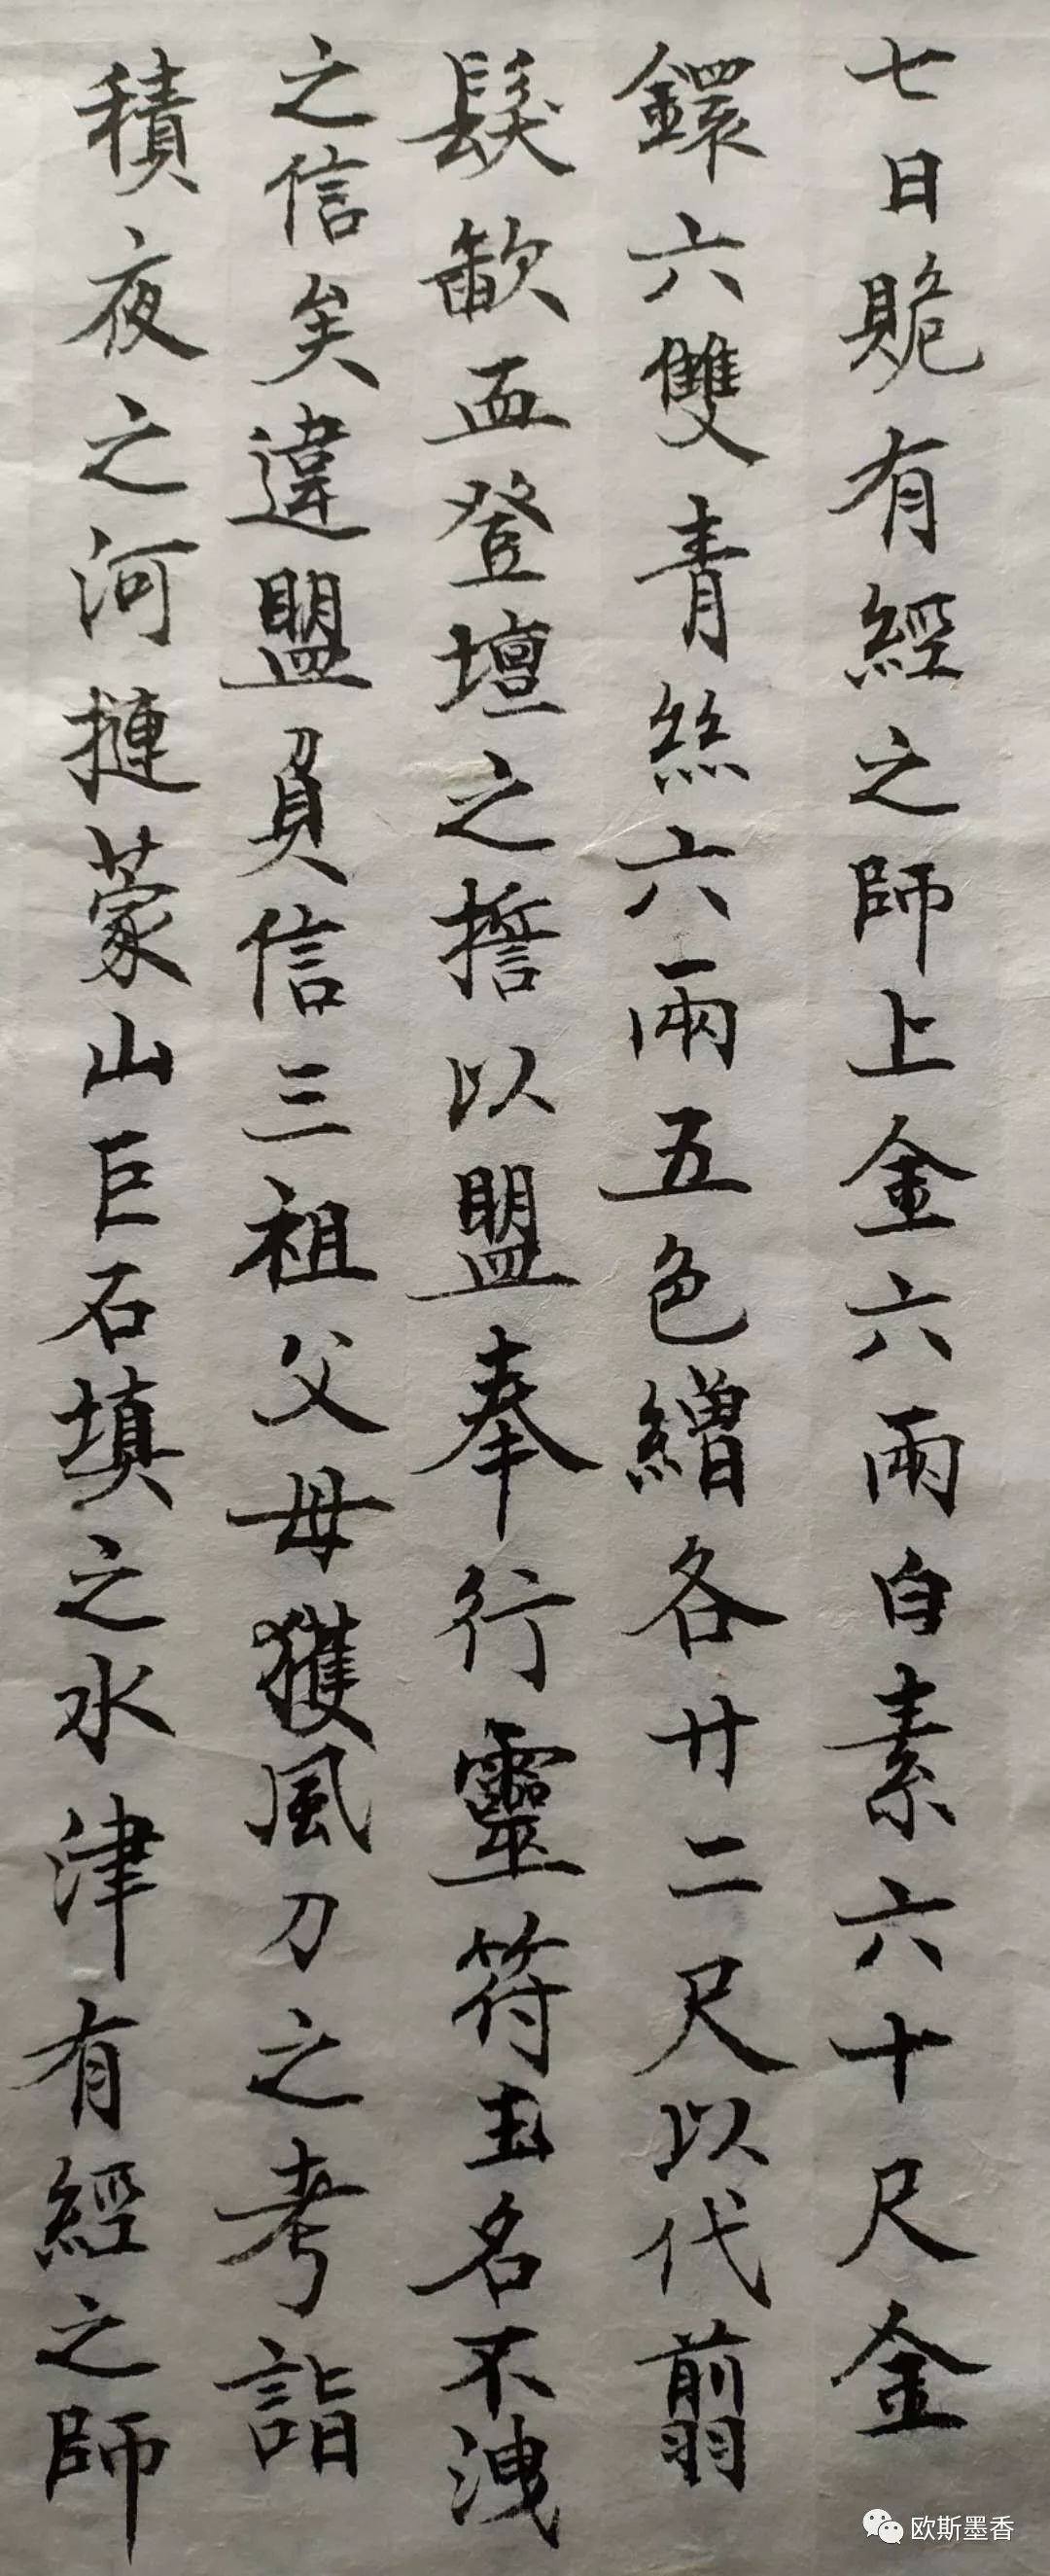 七日貽有經之師上金六兩白素六十尺金
鐶六雙青絲六兩五色繒各廿二尺以代翦
髮歃血登壇之誓以盟奉行靈符玉名不洩
之信矣違盟負信三祖父母獲風刀之考詣
積夜之河摙蒙山巨石填之水津有經之師
欧斯墨香